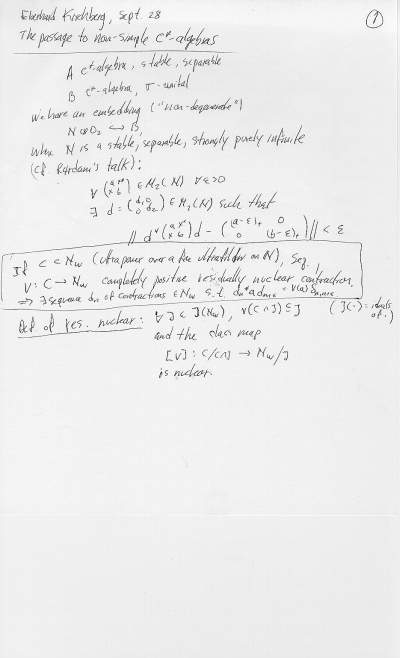 Eberhard Kirchberg, Sept. 28
①
The passage to non-simple C*-algebras
A C*-algebra, stable, separable
B C*-algebra, σ-unital
We have an embedding ("non-degenerate")
N⊗O₂ ↪ B,
where N is a stable, separable, strongly purely infinite
(cf Rørdam's talk):
∀ (a x* / x b) ∈ M₂(N) ∀ε>0
∃ d = (d₁ 0 / 0 d₂) ∈ M₂(N) such that
‖ d* (a x* / x b) d − ((a−ε)₊ 0 / 0 (b−ε)₊) ‖ < ε
If C ⊂ N_ω (Ultrapower over a free ultrafilter on N), sep.,
V: C → N_ω completely positive residually nuclear contraction.
⇒ ∃ sequence dₙ of contractions ∈ N_ω s.t. dₙ* a dₘ = V(a) δₙ,ₘ
Def of res. nuclear: ∀ J ∈ J(N_ω), V(C∩J) ⊆ J (J(·) = ideals
of ·)
and the class map
[V]: C/C∩J → N_ω/J
is nuclear.